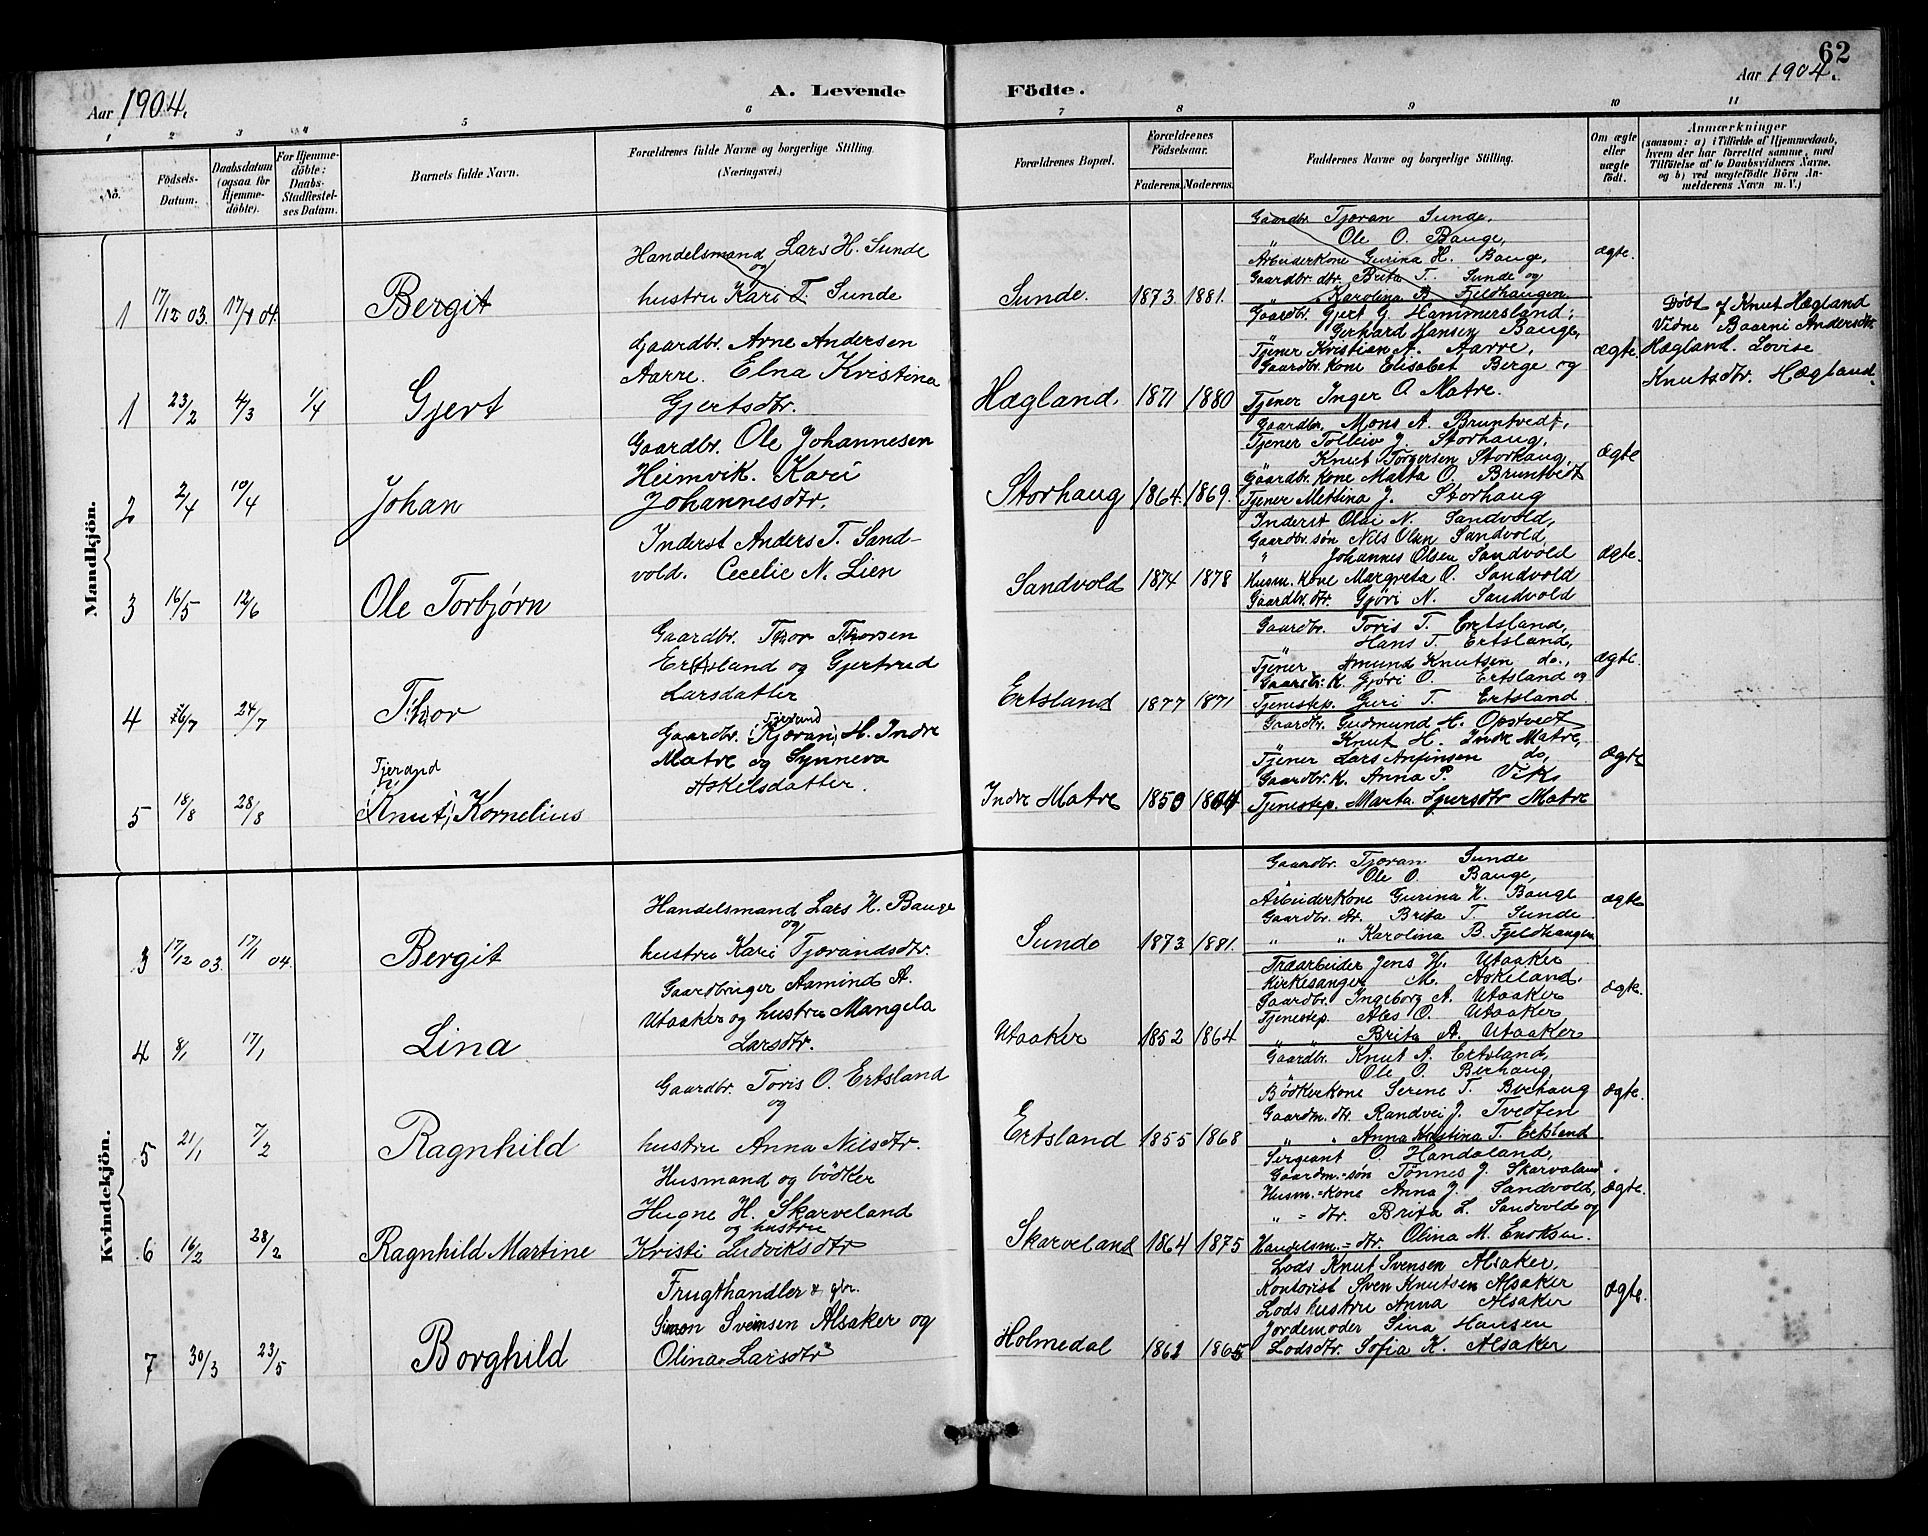 62
Aar 1904.
A. Levende
Födte.
Aar 1904.
1 2 3 4 5 6 7 8 9 10 11
No.
Födsels-
Datum.
Daabsdatum
(ogsaa for
Hjemme-
döbte).
For Hjemme-
döbte:
Daabs-
Stadfæstel-
ses Datum.
Barnets fulde Navn.
Forældrenes fulde Navne og borgerlige Stilling.
(Næringsvei.)
Forældrenes Bopæl.
Forældrenes
Födselsaar.
Faderens. Moderens.
Faddernes Navne og borgerlige Stilling.
Om ægte
eller
uægte
födt.
Anmærkninger
(saasom: a) i Tilfælde af Hjemmedaab,
hvem der har forrettet samme, med
Tilföielse af to Daabsvidners Navne,
og b) ved uægtefödte Börn An-
melderens Navn m. V.)
Mandkjön.
1 17/12 03. 17/1 04. Bergit
Handelsmand Lars H. Sunde
og
hustru Kari T. Sunde
Sunde. 1873. 1881.
Gaardbr. Tjæran Sunde,
" Ole O. Bauge,
Arbeiderkone Gurina H. Bauge,
Gaardbr. dtr. Brita T. Sunde og
" Karolina B. Fjeldhaugen
ægte.
1 23/2 4/3 1/4 Gjert
Gaardbr. Arne Andersen
Aarre. Elna Kristina
Gjertsdtr.
Hægland. 1871 1880
Gaardbr. Gjert G. Hammersland,
" Gerhard Hansen Bauge,
Tjener Kristian A. Aarre,
Gaardbr. kone Elisabet Berge og
Tjener Inger O. Matre.
ægte
Døbt af Knut Hægland
Vidne Baarni Andersdtr
Hægland. Lovise
Knutsdtr. Hægland.
2 2/4 10/4 Johan
Gaardbr. Ole Johannesen
Heimvik. Kari
Johannesdtr.
Storhaug 1864. 1869.
Gaardbr. Mons A. Bruntvedt,
Tjener Tolleiv J. Storhaug,
" Knut Torgersen Storhaug,
Gaardbr. kone Marta O. Bruntvedt
Tjener Mettina J. Storhaug
ægte
3 16/5 12/6 Ole Torbjørn
Inderst Anders T. Sand-
vold. Cecelie N. Lien
Sandvold 1874 1878
Inderst Olai N. Sandvold,
Gaardbr. søn Nils Olsen Sandvold,
" Johannes Olsen Sandvold
Husm. kone Margreta O. Sandvold
Gaardbr. dtr. Gjøri N. Sandvold
ægte.
4 16/7 24/7 Thor
Gaardbr. Thor Thorsen
Ertsland og Gjertrud
Larsdatter
Ertsland 1877 1871
Gaardbr. Toris T. Ertsland,
" Hans T. Ertsland,
Tjener Amund Knutsen do.,
Gaardbr. K. Gjøri O. Ertsland og
Tjenestep. Guri T. Ertsland.
ægte.
5 18/8 28/8 Tjerand
(Knut) Kornelius
Tjerand
Gaardbr. (Kjæran) H. Indre
Matre og Synneva
Askelsdatter.
Indre Matre 1850
Gaardbr. Gudmund H. Opstvedt
" Knut H. Indre Matre,
Tjener Lars Anfinsen do,
Gaardbr. K. Anna P. Vik,
Tjenestep. Marta Sjursdtr Matre
Ægte
Kvindekjön.
3 17/12 03. 17/1 04. Bergit
Handelsmand Lars H. Bauge
og
hustru Kari Tjærandsdtr.
Sunde 1873 1881.
Gaardbr. Tjæran Sunde
" Ole O. Bauge,
Arbeiderkone Gurina H. Bauge
Gaardbr. dtr. Brita T. Sunde
" " Karolina B. Fjeldhaugen
ægte
4 8/1 17/1 Lina
Gaardbruger Aamind A.
Utaaker og hustru Mangela
Larsdtr.
Utaaker 1852 1864
Træarbeider Jens H. Utaaker
Kirkesanger M. Askeland,
Gaardbr. Ingeborg A. Utaaker,
Tjenestep. Ales O. Utaaker,
" Brita A. Utaaker
ægte.
5 21/1 7/2 Ragnhild
Gaardbr. Toris O. Ertsland
og
hustru Anna Nilsdtr.
Ertsland 1855 1868
Gaardbr. Knut A. Ertsland,
" Ole O. Berhaug,
Bødkerkone Serene T. Berhaug
Gaardm. dtr. Randvei J. Tvedten
" " Anna Kristina T. Ertsland
ægte.
6 16/2 28/2 Ragnhild Martine
Husmand og bödker
Hugne H. Skarveland
og hustru
Kristi Ludviksdtr
Skarveland 1864 1875
Sergeant O. Handeland,
Gaardm.=søn Tønnes J. Skarveland
Husm.=kone Anna J. Sandvold,
" = dtr. Brita L. Sandvold og
Handelsm.=dtr. Olina M. Enoksen.
ægte.
7 30/3 23/5 Borghild
Frugthandler & gbr.
Simon Svensen Alsaker og
Olina Larsdtr
Holmedal 1862 1865
Lods Knut Svensen Alsaker,
Kontorist Sven Knutsen Alsaker
Lods hustru Anna Alsaker
Jordemoder Sina Hansen
Lodsdtr. Sofia K. Alsaker
ægte.